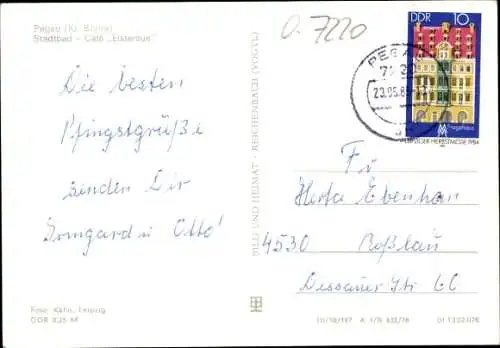 Pegau (Kr. Borna)
Stadtbad - Café „Elsteraue"
0. 7220
DDR 10
PEGAU
7220
23.05.85
Fregehaus
LEIPZIGER HERBSTMESSE 1984
Die besten
Pfingstgrüße
senden Dir
Irmgard u. Otto!
BILD UND HEIMAT · REICHENBACH (VOGTL)
Für
Herta Ebenhan
4530 Roßlau
Dessauer Str. 60
Foto: Kühn, Leipzig
DDR 0,25 M
III/18/197 A 1/B 633/78 01 13 02 076